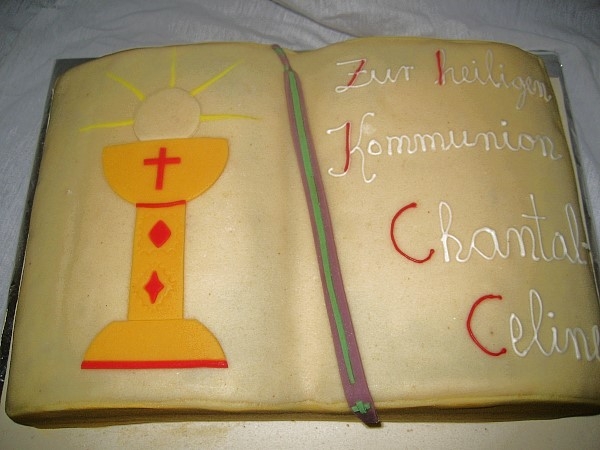 Zur heiligen
Kommunion
Chantal-
Celine